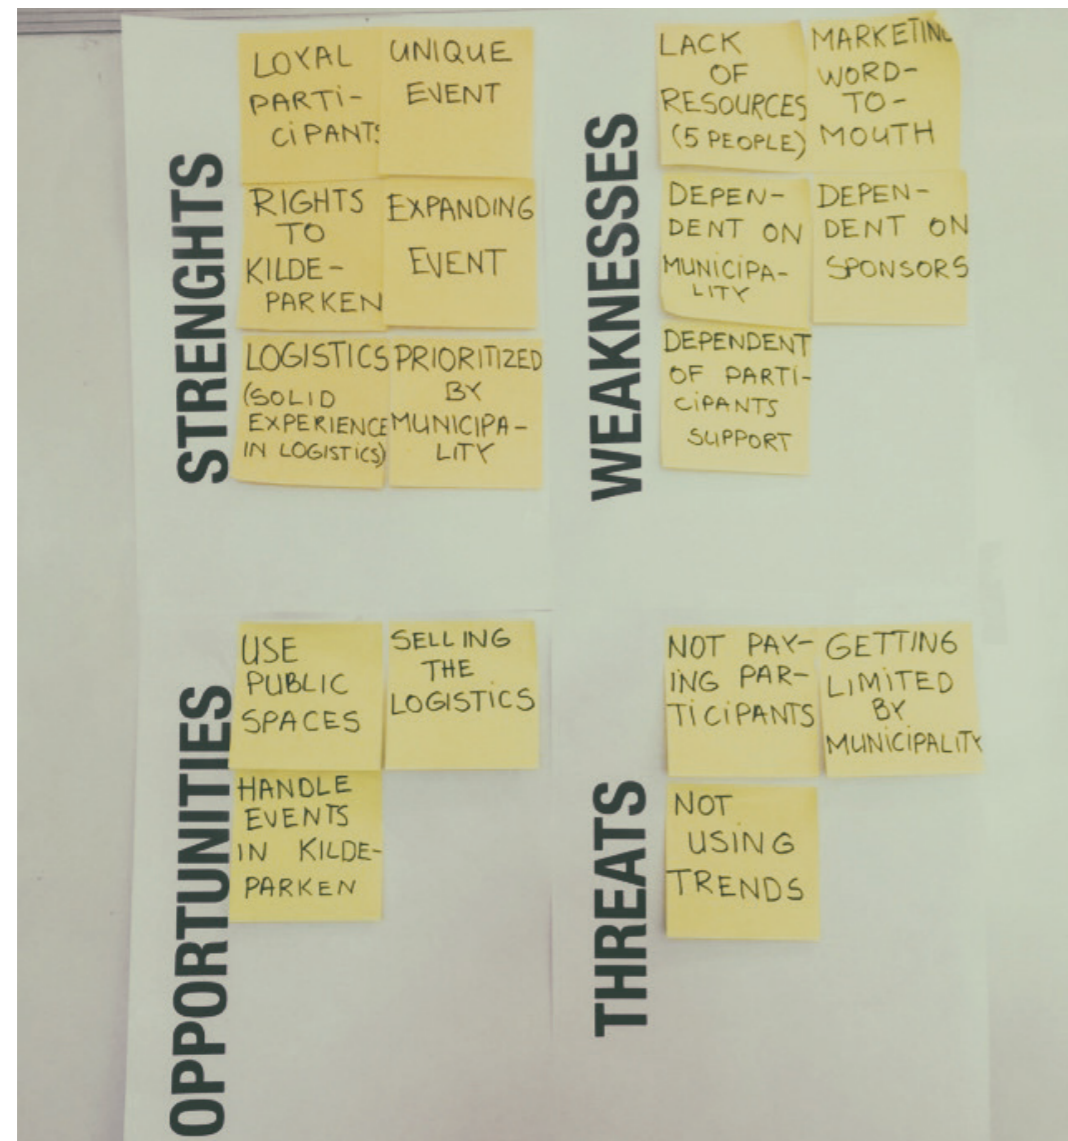 STRENGHTS
LOYAL
PARTI-
CIPANTS
UNIQUE
EVENT
RIGHTS
TO
KILDE-
PARKEN
EXPANDING
EVENT
LOGISTICS
(SOLID
EXPERIENCE
IN LOGISTICS)
PRIORITIZED
BY
MUNICIPA-
LITY
WEAKNESSES
LACK
OF
RESOURCES
(5 PEOPLE)
MARKETING
WORD-
TO-
MOUTH
DEPEN-
DENT ON
MUNICIPA-
LITY
DEPEN-
DENT ON
SPONSORS
DEPENDENT
OF PARTI-
CIPANTS
SUPPORT
OPPORTUNITIES
USE
PUBLIC
SPACES
SELLING
THE
LOGISTICS
HANDLE
EVENTS
IN KILDE-
PARKEN
THREATS
NOT PAY-
ING PAR-
TICIPANTS
GETTING
LIMITED
BY
MUNICIPALITY
NOT
USING
TRENDS